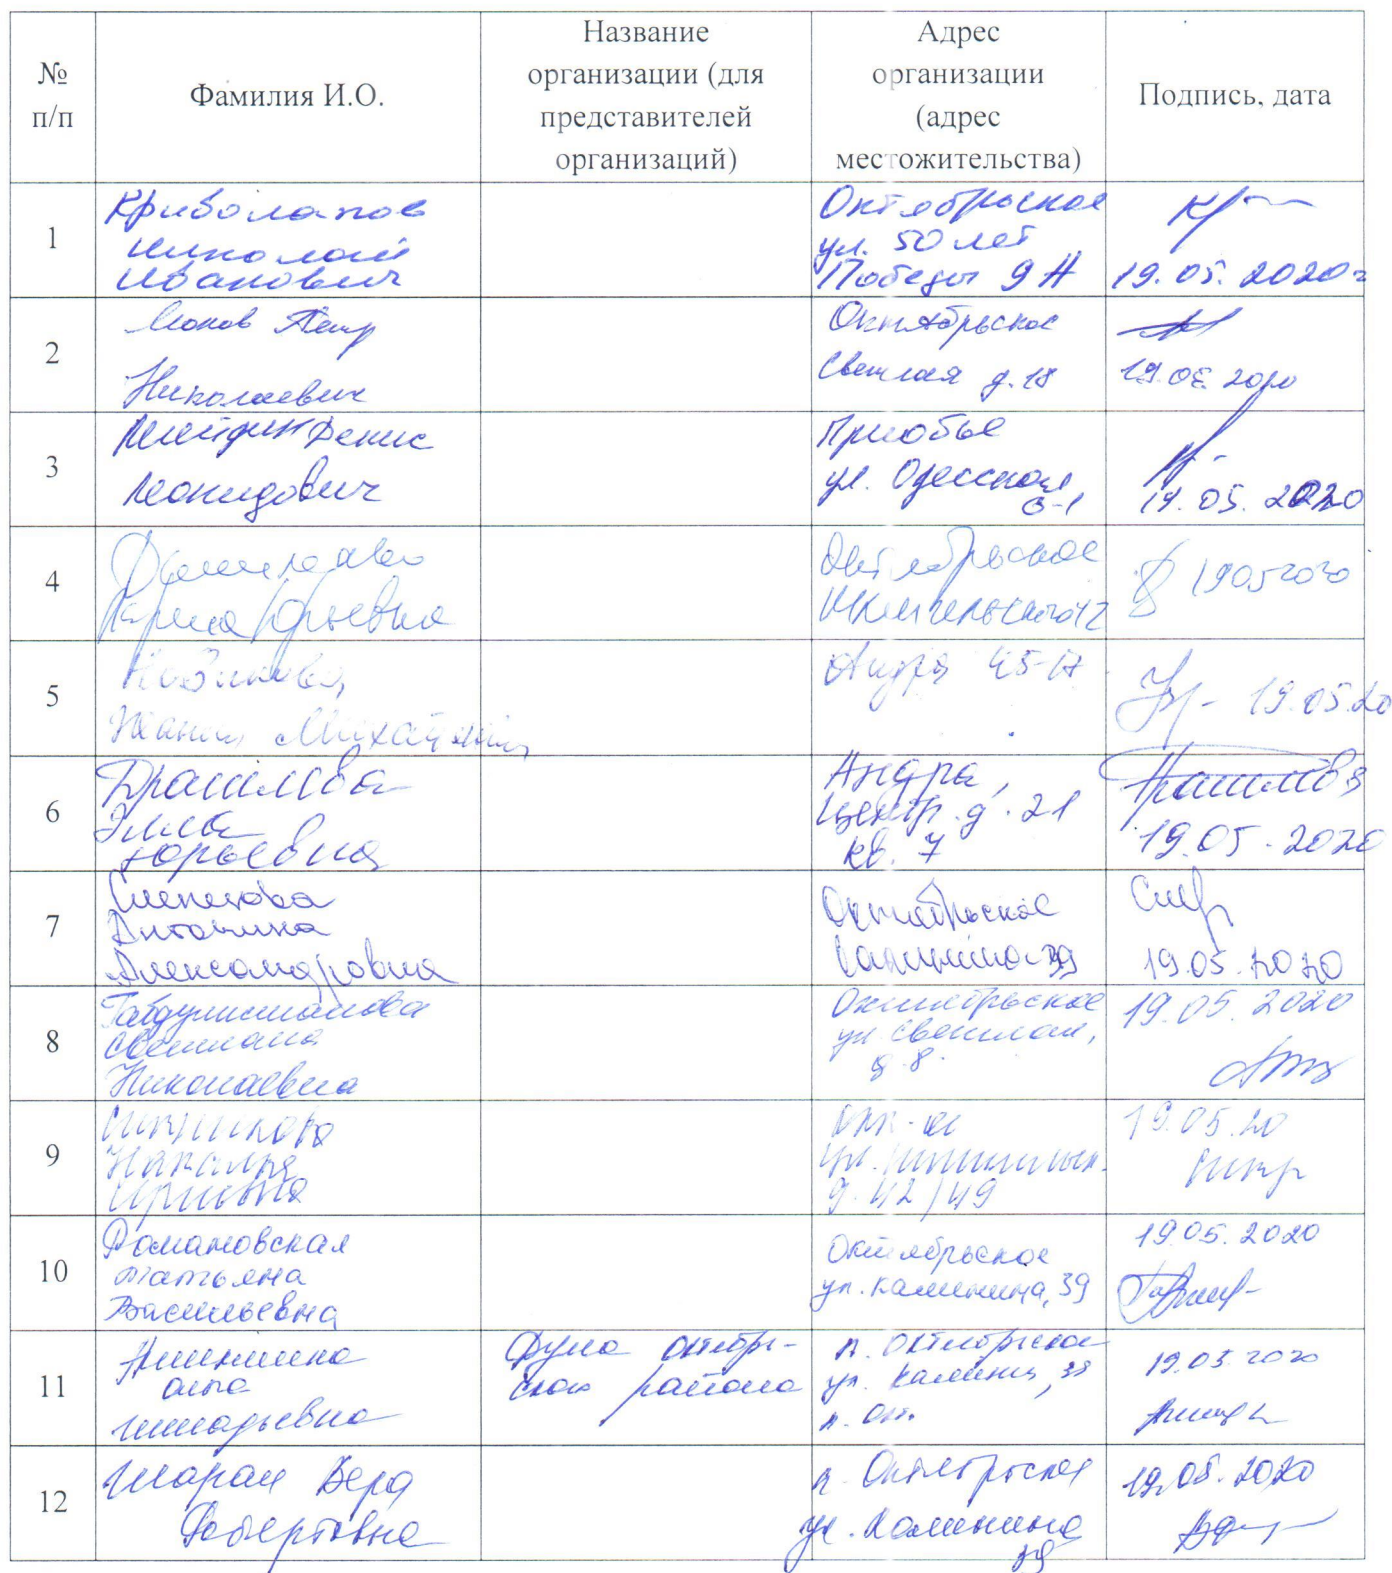 №
п/п
Фамилия И.О.
Название
организации (для
представителей
организаций)
Адрес
организации
(адрес
местожительства)
Подпись, дата
1
Криволапов
Николай
Иванович
Октябрьское
ул. 50 лет
Победы 9 А
19.05.2020г
2
Попов Петр
Николаевич
Октябрьское
Светлая д. 18
19.05 2020
3
Денис
Леонидович
Приобье
ул. Одесская,
6-1
19.05.2020
4
Юрьевна
Октябрьское
19052020
5
Новикова
Жанна
Андра 45-17
19.05.20
6
Юрьевна
Андра,
Центр. д. 21
кв. 7
19.05.2020
7
Слепцова
Антонина
Александровна
Октябрьское
Калинина 39
19.05.2020
8
Светлана
Николаевна
Октябрьское
ул Светлая,
д. 8.
19.05.2020
9
Наталья
Окт-ое
ул.
д. 42/49
19.05.20
10
Романовская
Татьяна
Васильевна
Октябрьское
ул. Калинина, 39
19.05.2020
11
Анна
Геннадьевна
Дума Октябрь-
ского района
п. Октябрьское
ул. Калинина, 39
19.05 2020
12
Шарап Вера
Робертовна
п. Октябрьское
ул. Калинина
39
19.05.2020